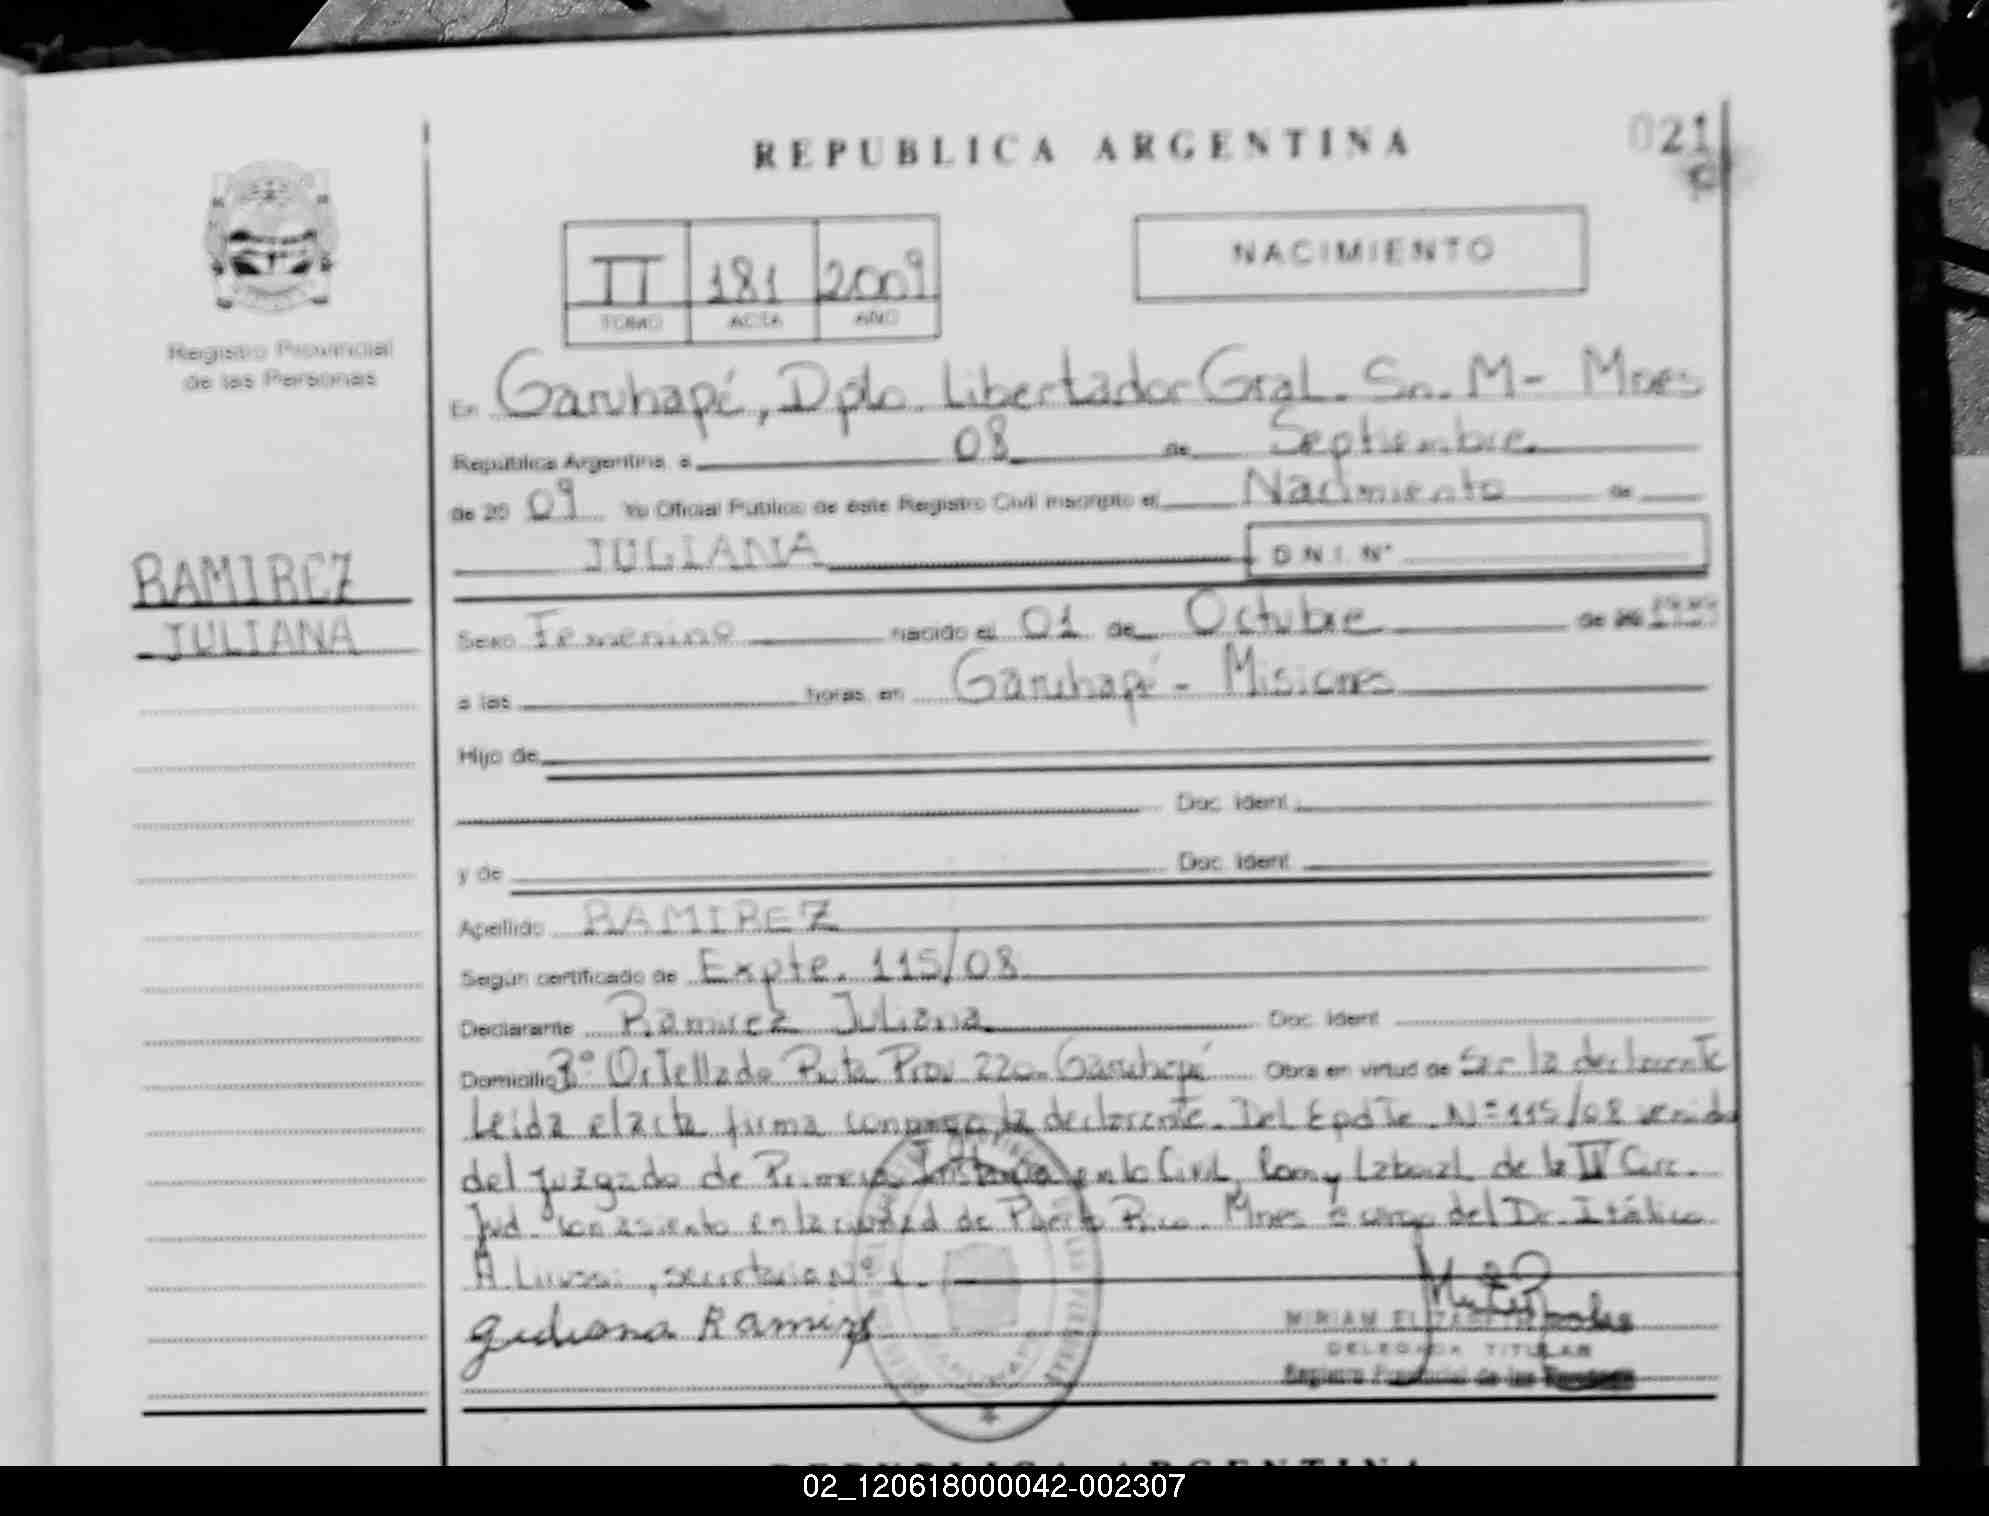 REPUBLICA ARGENTINA
021
NACIMIENTO
II 181 2009
TOMO ACTA AÑO
Registro Provincial
de las Personas
En Garuhapé, Dpto. Libertador Gral. Sn. M- Mnes
República Argentina, a 08 de Septiembre
de 20 09 Yo Oficial Público de éste Registro Civil inscripto el Nacimiento de
JULIANA D.N.I. N°
RAMIREZ
JULIANA
Sexo Femenino nacido el 01 de Octubre de
a las horas, en Garuhapé - Misiones
Hijo de
Doc. Ident.
y de Doc. Ident.
Apellido RAMIREZ
Según certificado de Expte. 115/08
Declarante Ramirez Juliana Doc. Ident.
Domicilio B° Ortellado Ruta Prov 220. Garuhapé Obra en virtud de Ser la declarante
Leida el acta firma conmigo la declarante. Del N=115/08 venido
del Juzgado de Primera Instancia en lo Civil, Com y Laboral de la Circ.
Jud. con asiento en la ciudad de Puerto Rico. Mnes a cargo del Dr. Itálico
A. secretaria N° 1.
Juliana Ramirez
MIRIAM ELIZABETH
DELEGADA TITULAR
Registro Provincial de las Personas
REPUBLICA ARGENTINA
02_120618000042-002307